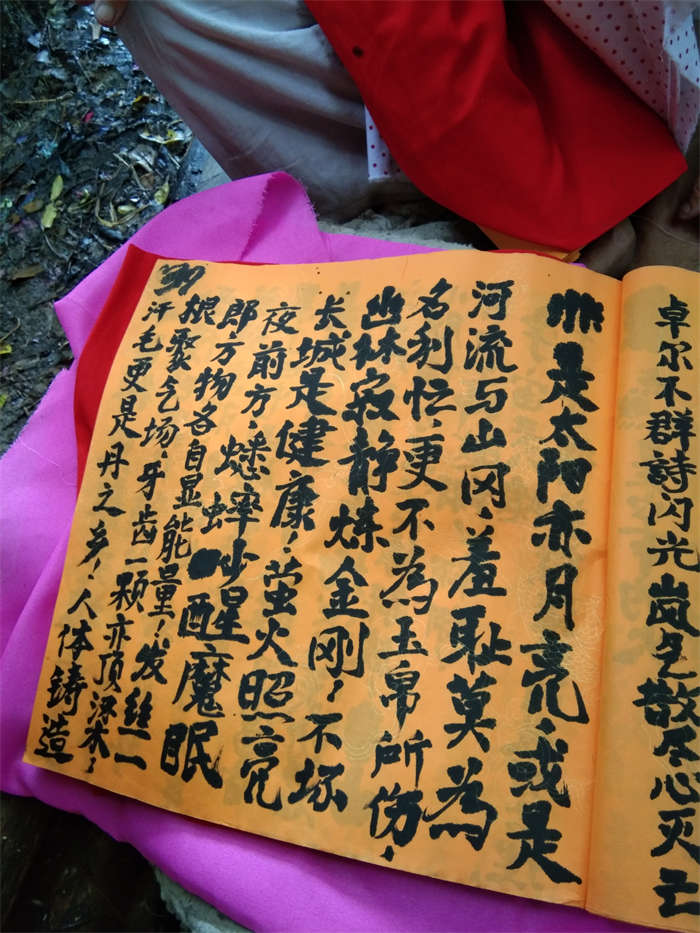 卓尔不群詩闪光岚气散尽心灭亡
非是太阳亦月亮、或是
河流与山冈、羞耻莫為
名利忙、更不為玉帛所伤、
幽林寂静炼金刚！不坏
长城是健康！萤火照亮
夜前方、蟋蟀吵醒魔眠
郎、万物各自显能量！发丝一
根聚气场、牙齿一颗亦顶梁！
汗毛更是丹之乡！人体铸造